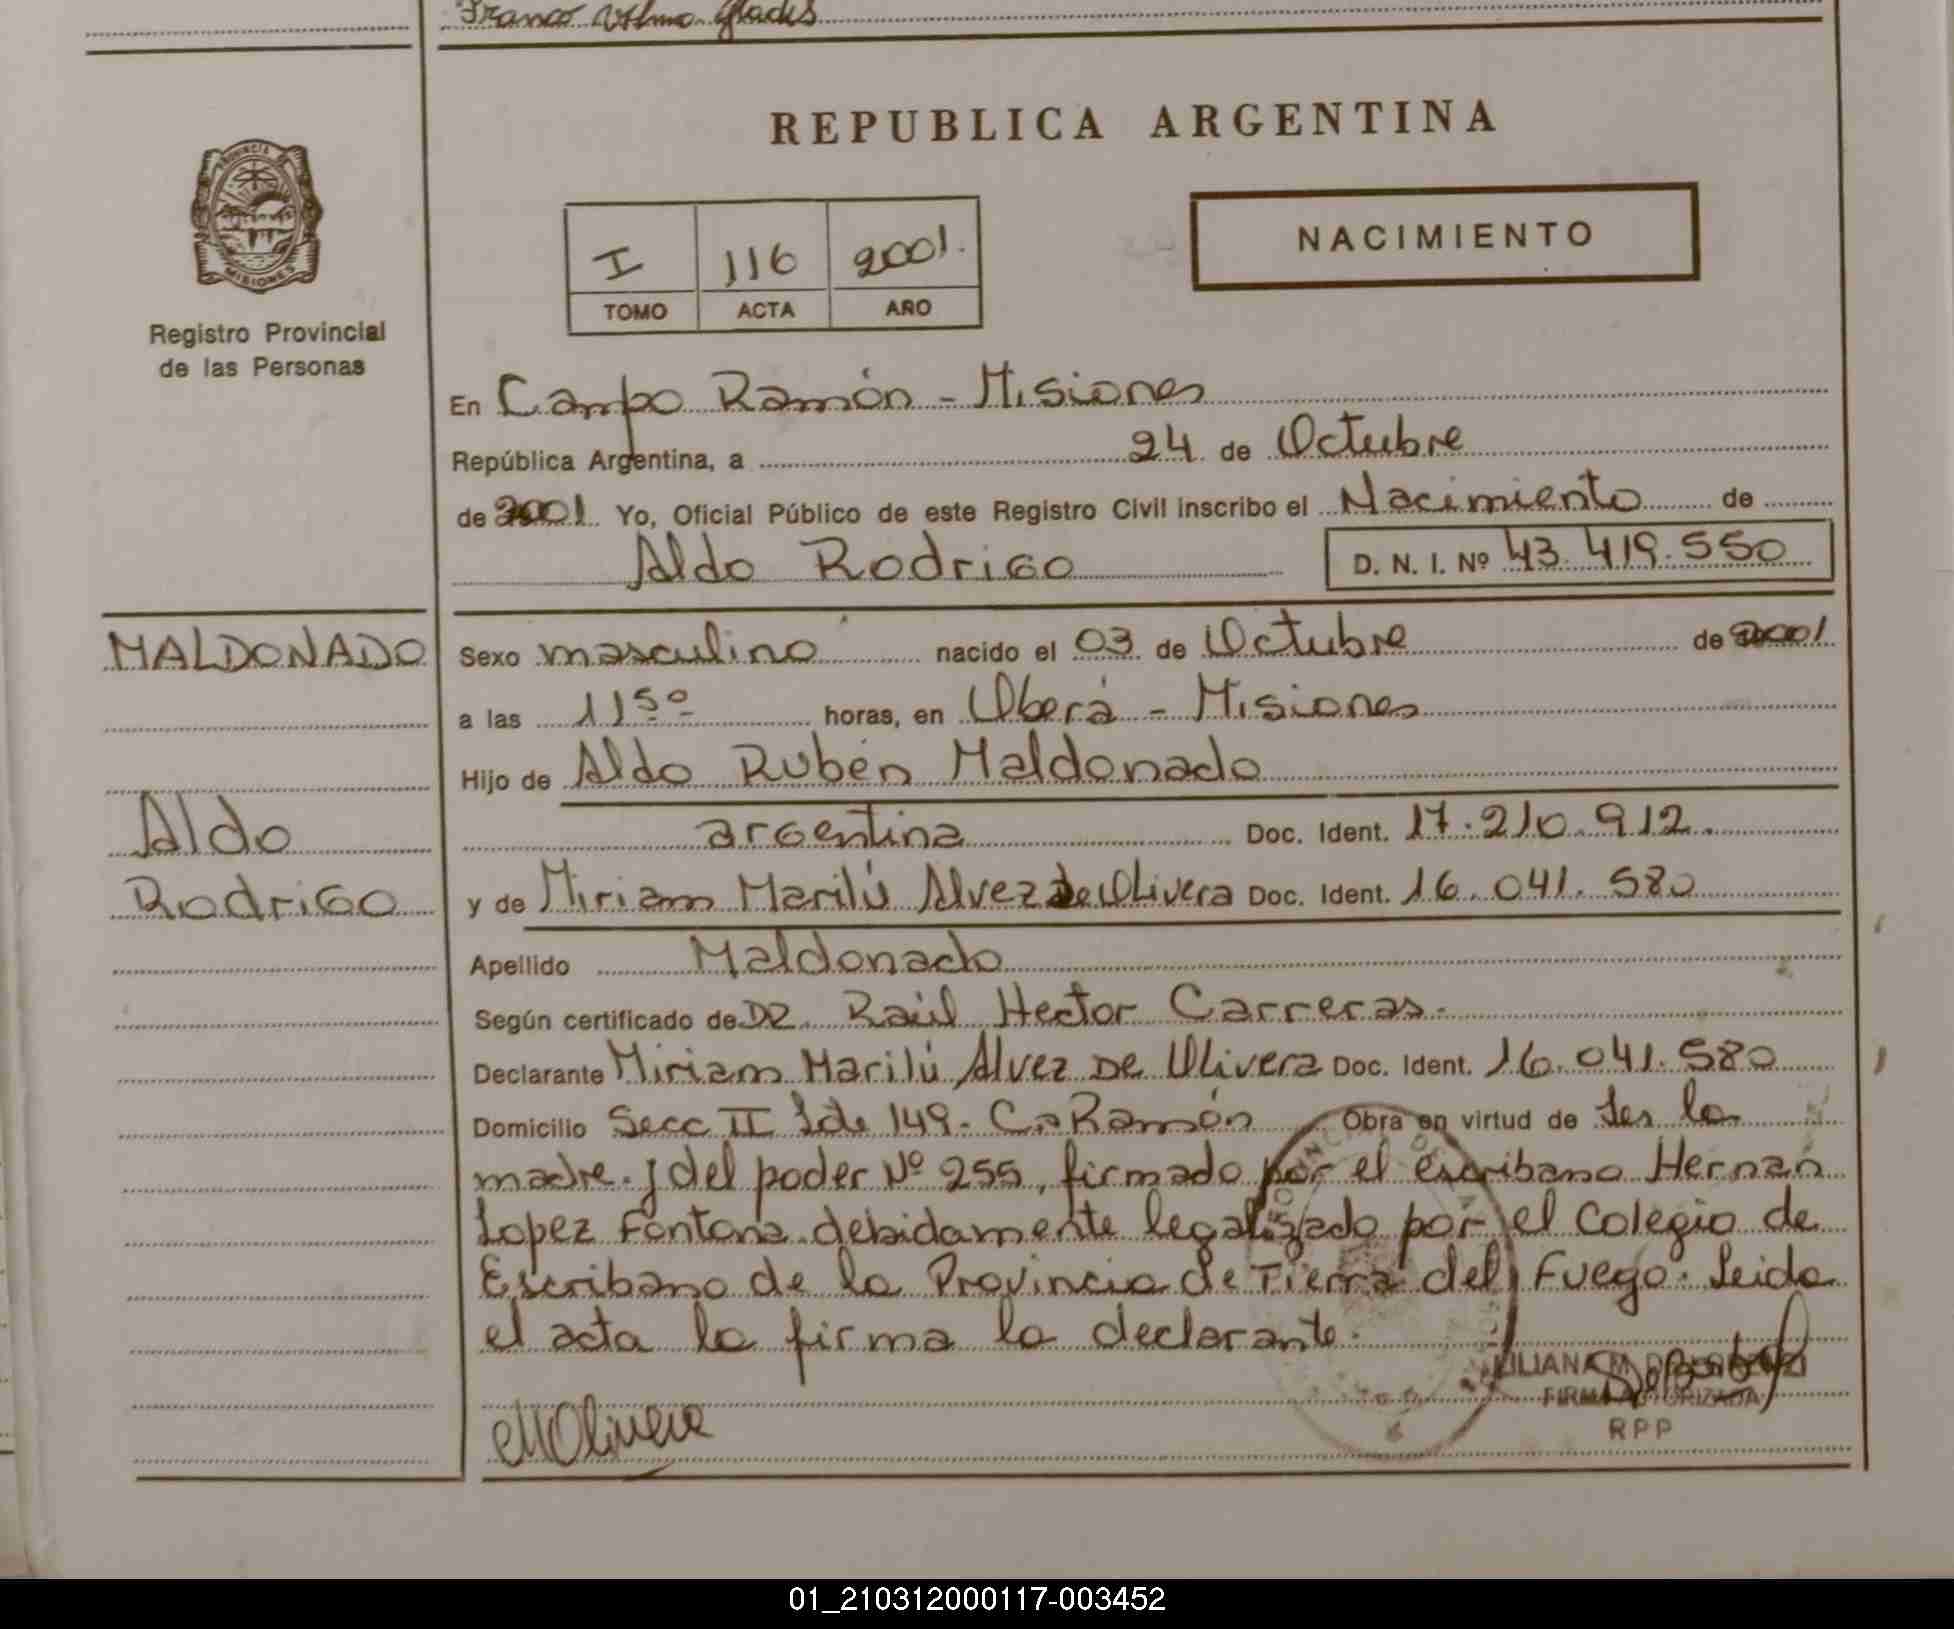 Franco Vilma Gladis
REPUBLICA ARGENTINA
PROVINCIA DE
MISIONES
Registro Provincial
de las Personas
I 116 2001.
TOMO ACTA AÑO
NACIMIENTO
En Campo Ramón - Misiones
República Argentina, a 24 de Octubre
de 2001. Yo, Oficial Público de este Registro Civil inscribo el Nacimiento de
Aldo Rodrigo D. N. I. Nº 43.419.550
MALDONADO
Sexo masculino nacido el 03 de Octubre de 2001
a las 11 50 horas, en Oberá - Misiones
Hijo de Aldo Rubén Maldonado
argentina Doc. Ident. 17.210.912.
Aldo
Rodrigo
y de Miriam Marilú Alvez de Olivera Doc. Ident. 16.041.580
Apellido Maldonado
Según certificado de DR. Raúl Hector Carreras.
Declarante Miriam Marilú Alvez De Olivera Doc. Ident. 16.041.580
Domicilio Secc II Lote 149. C. Ramón Obra en virtud de ser la
madre. y del poder Nº 255, firmado por el escribano Hernan
Lopez Fontana debidamente legalizado por el Colegio de
Escribano de la Provincia de Tierra del Fuego. Leida
el acta la firma la declarante.
LILIANA M.
FIRMA AUTORIZADA
RPP
MOlivera
01_210312000117-003452